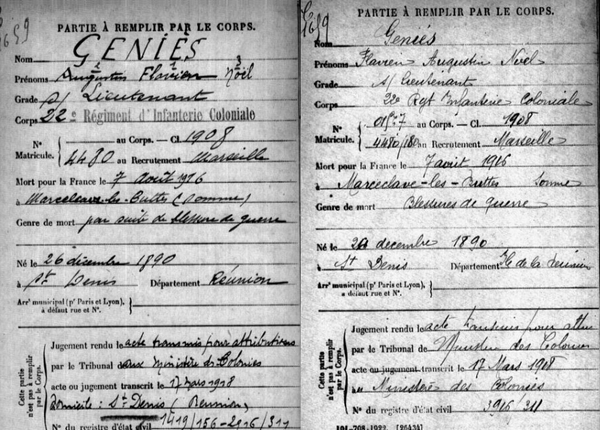 PARTIE À REMPLIR PAR LE CORPS.
Nom GENIÈS
Prénoms Augustin Flavien Noël
Grade s/ Lieutenant
Corps 22e Régiment d'Infanterie Coloniale
N° au Corps. — Cl. 1908
Matricule. 4480 au Recrutement Marseille
Mort pour la France le 7 août 1916
à Marcelcave-les-Buttes (Somme)
Genre de mort par suite de blessure de guerre
Né le 26 décembre 1890
à St Denis Département Réunion
Arrt municipal (pr Paris et Lyon),
à défaut rue et N°.
Cette partie n'est pas à remplir par le Corps.
Jugement rendu le acte transmis pour attributions
par le Tribunal aux Ministère des Colonies
acte ou jugement transcrit le 17 mars 1918
domicile : St Denis (Réunion)
N° du registre d'état civil 1419/156-2916/311
PARTIE À REMPLIR PAR LE CORPS.
Nom Geniés
Prénoms Flavien Augustin Noël
Grade s/ Lieutenant
Corps 22e Rgt Infanterie Coloniale
N° au Corps. — Cl. 1908
Matricule. 4480/180 au Recrutement Marseille
Mort pour la France le 7 août 1916
à Marceclave-les-Buttes Somme
Genre de mort Blessures de guerre
Né le decembre 1890
à St Denis Département Ile de la Réunion
Arrt municipal (pr Paris et Lyon),
à défaut rue et N°.
Cette partie n'est pas à remplir par le Corps.
Jugement rendu le acte pour
par le Tribunal de Ministre des Colonies
acte ou jugement transcrit le 17 Mars 1918
à Ministère des Colonies
N° du registre d'état civil 3916/311